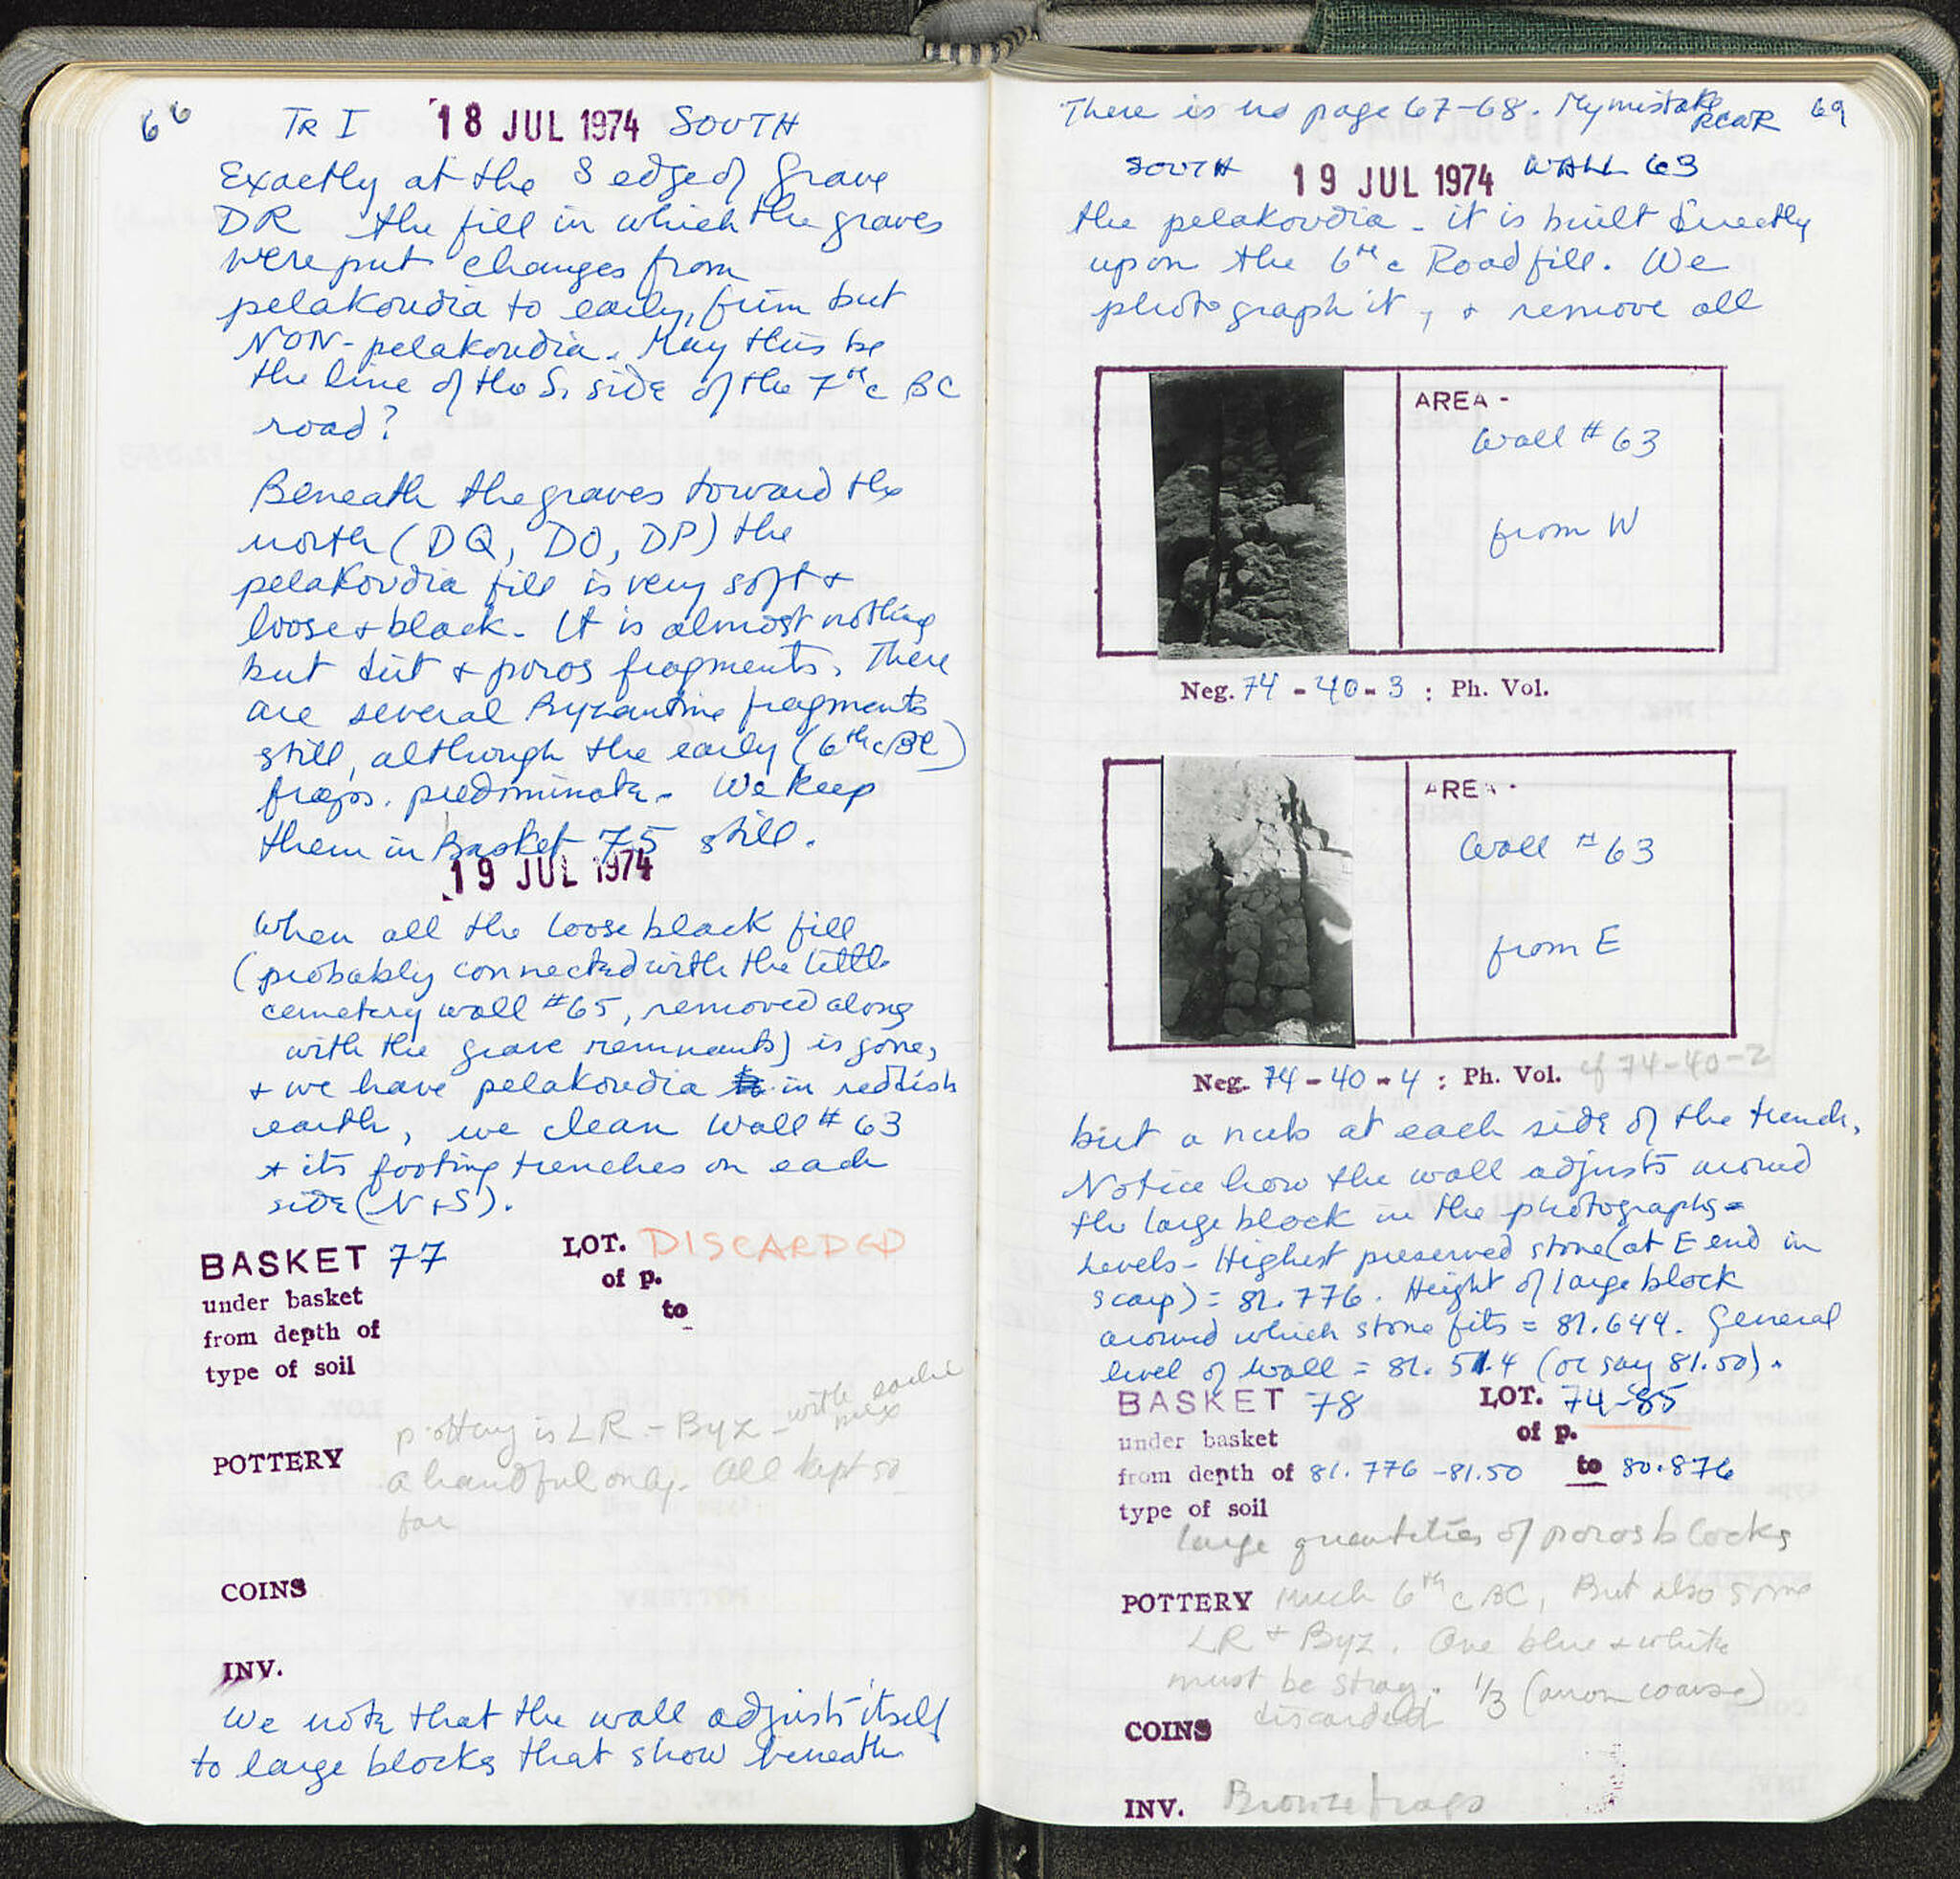 66 TR I 18 JUL 1974 SOUTH
Exactly at the S edge of Grave
DR the fill in which the graves
were put changes from
pelakoudia to early, firm but
NON-pelakoudia. May this be
the line of the S. side of the 7th c BC
road?
Beneath the graves toward the
north (DQ, DO, DP) the
pelakoudia fill is very soft +
loose + black. It is almost nothing
but dirt + poros fragments. There
are several Byzantine fragments
still, although the early (6th c BC)
frags. predominate. We keep
them in Basket 75 still.
19 JUL 1974
When all the loose black fill
(probably connected with the little
cemetery wall #65, removed along
with the grave remnants) is gone,
+ we have pelakoudia in reddish
earth, we clean Wall # 63
+ its footing trenches on each
side (N+S).
BASKET 77 LOT. DISCARDED
under basket of p.
from depth of to
type of soil
pottery is LR - Byz - with earlier mix
POTTERY a handful only. All kept so
far
COINS
INV.
We note that the wall adjusts itself
to large blocks that show beneath
There is no page 67-68. My mistake RCAR 69
SOUTH 19 JUL 1974 WALL 63
the pelakoudia - it is built directly
upon the 6th c Road fill. We
photograph it, + remove all
AREA -
Wall # 63
from W
Neg. 74 - 40 - 3 : Ph. Vol.
AREA -
Wall # 63
from E
Neg. 74 - 40 - 4 : Ph. Vol. cf 74-40-2
but a nub at each side of the trench.
Notice how the wall adjusts around
the large block in the photographs -
Levels - Highest preserved stone (at E end in
scarp) = 81.776. Height of large block
around which stone fits = 81.644. General
level of wall = 81.514 (or say 81.50).
BASKET 78 LOT. 74-85
under basket of p.
from depth of 81.776 - 81.50 to 80.876
type of soil
large quantities of poros blocks
POTTERY Much 6th c BC, But also some
LR + Byz. One blue + white
must be stray. 1/3 (coarse)
discarded
COINS
INV. Bronze frags